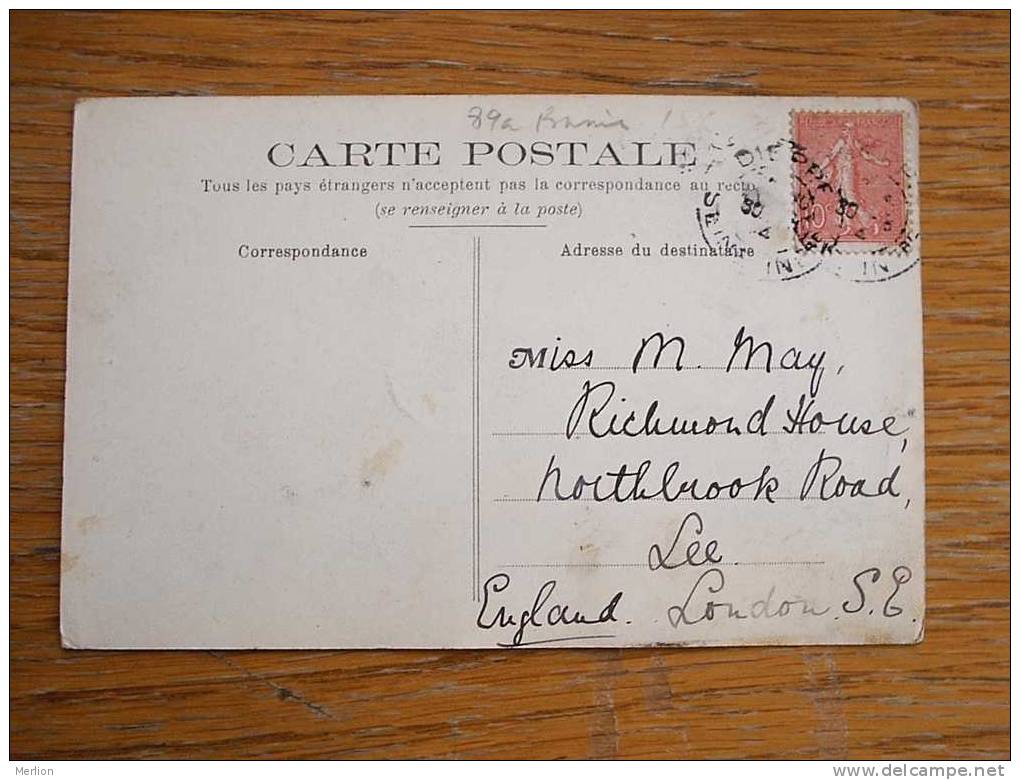 89a
CARTE POSTALE
Tous les pays étrangers n'acceptent pas la correspondance au recto
(se renseigner à la poste)
Correspondance
Adresse du destinataire
Miss M. May,
Richmond House,
Northbrook Road,
Lee.
England. London. S.E.
Merlion
www.delcampe.net